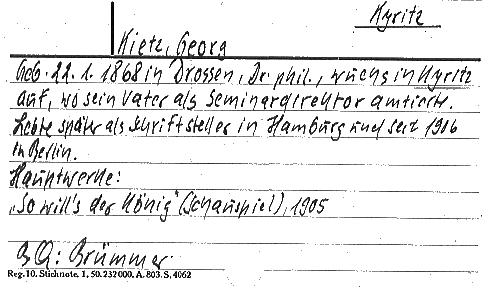 Kyritz
Kietz, Georg
Geb. 22. 1. 1868 in Drossen, Dr. phil., wuchs in Kyritz
auf, wo sein Vater als Seminardirektor amtierte.
Lebte später als Schriftsteller in Hamburg und seit 1906
in Berlin.
Hauptwerke:
„So will's der König" (Schauspiel), 1905
BQ: Brümmer
Reg. 10. Stichnote. 1, 50. 232000. A. 803. S. 4062